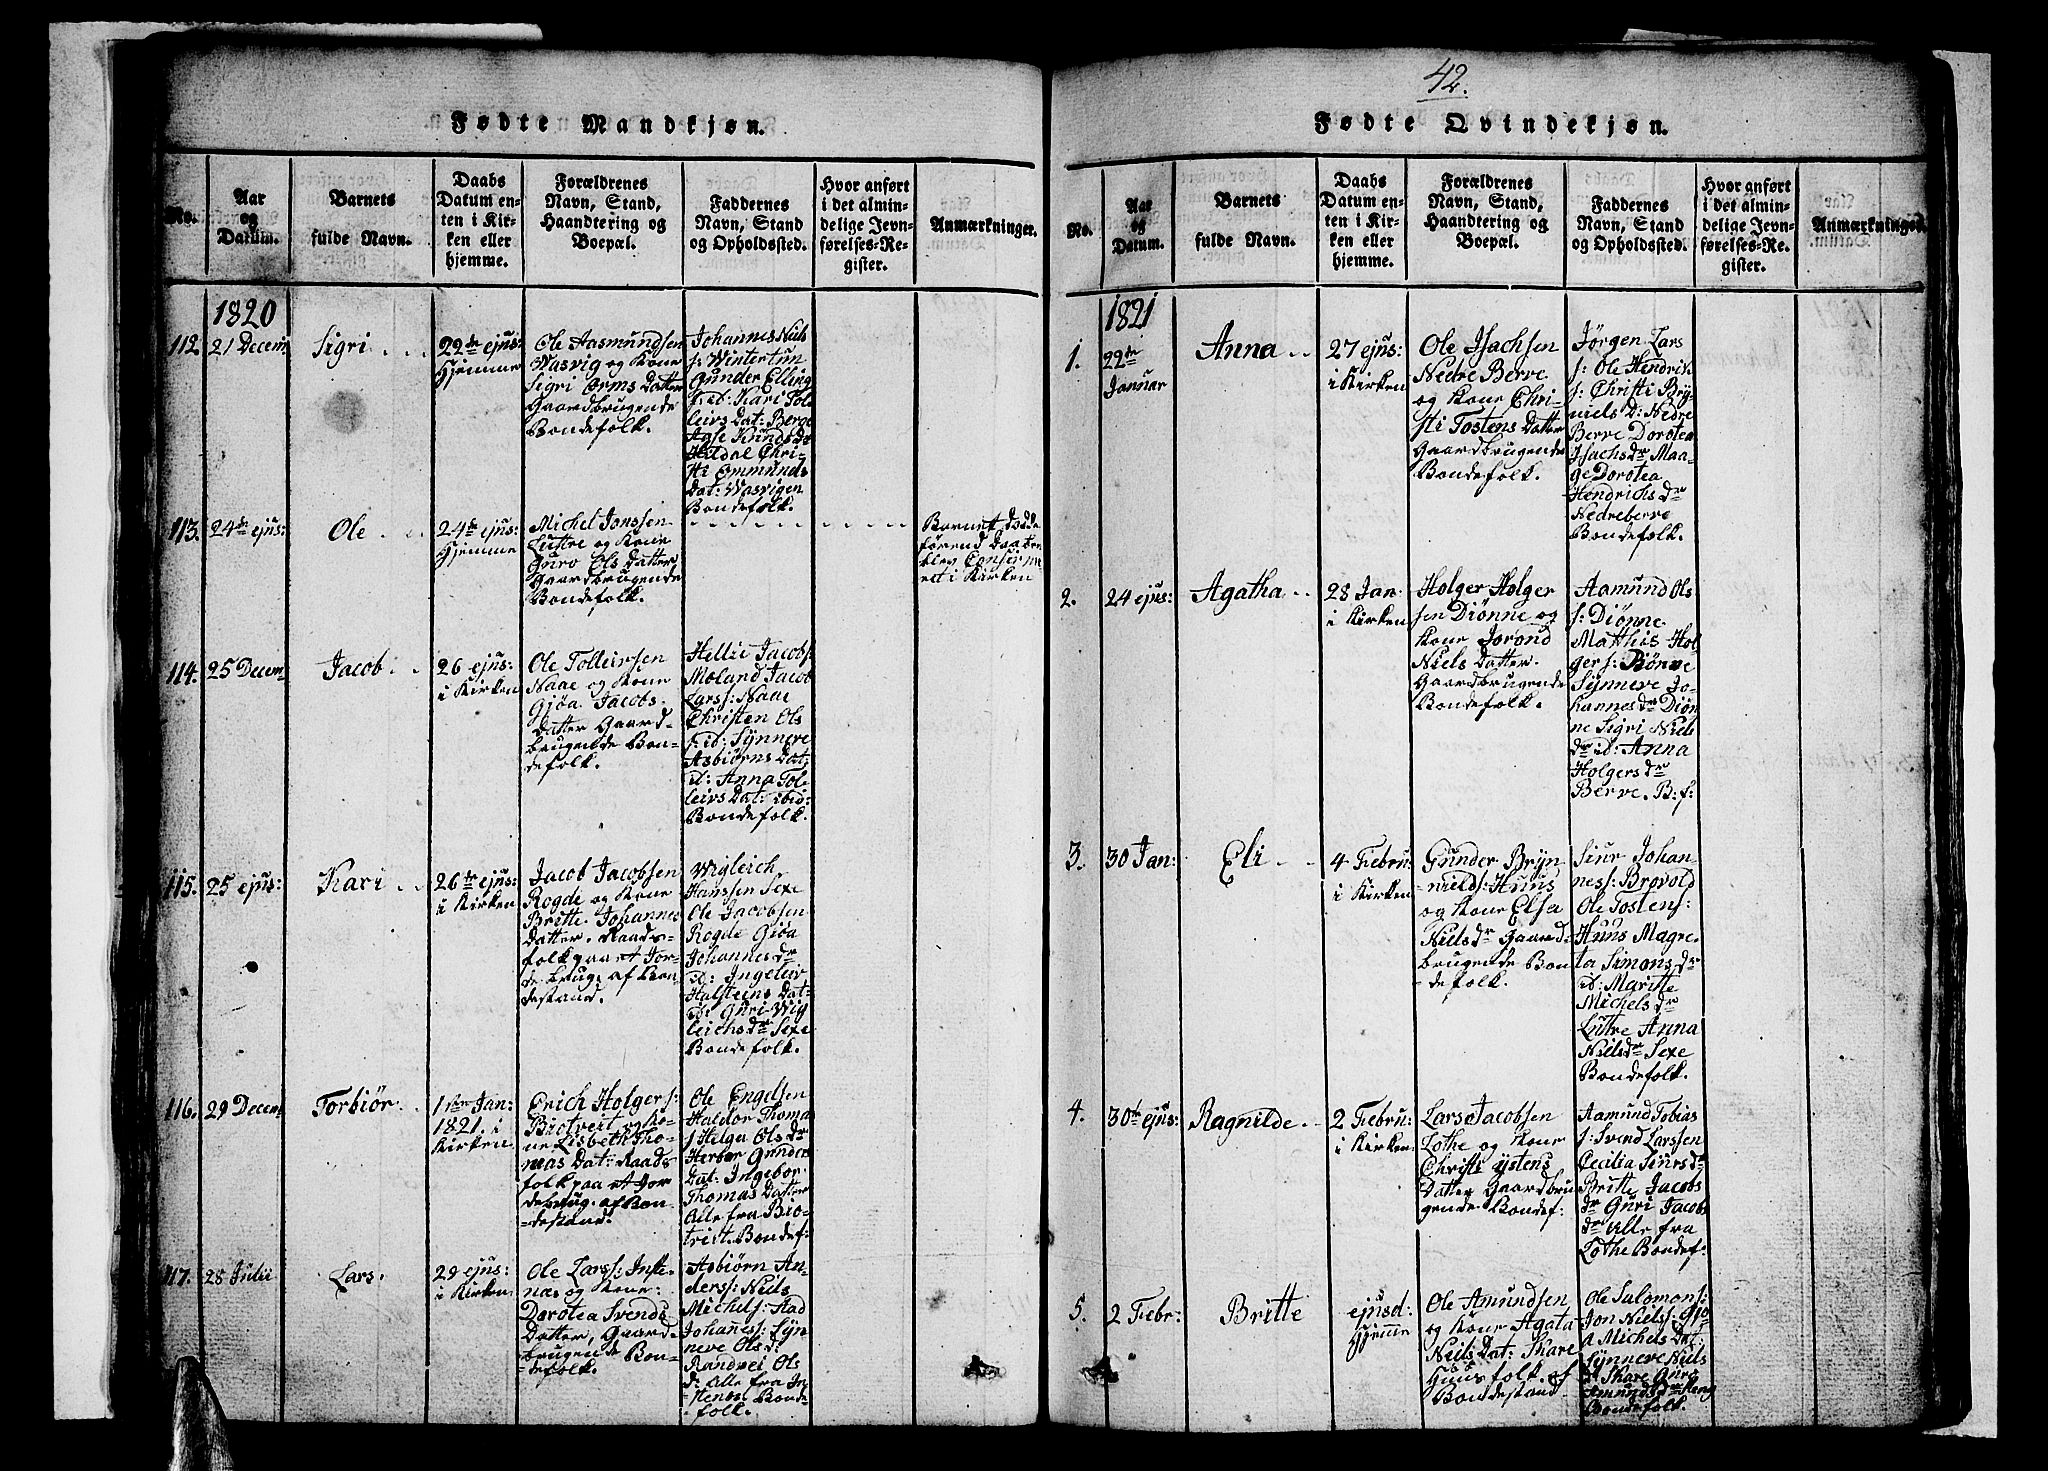 Fødte Mandkjøn.
No.
Aar
og
Datum.
Barnets
fulde Navn.
Daabs
Datum en-
ten i Kir-
ken eller
hjemme.
Forældrenes
Navn, Stand,
Haandtering og
Boepæl.
Faddernes
Navn, Stand
og Opholdssted.
Hvor anført
i det almin-
delige Jevn-
førelses-Re-
gister.
Anmærkninger.
1820
112
21 Decem
Sigri
22de ejus:
Hjemme
Ole Aasmundsen
Wasvig og Kone
Sigri Orms Datter
Gaardbrugende
Bondefolk.
Johannes Niels
s: Wintertun
Gunder Elling
s: id: Kari Tol
leivs Dat: Berge
Aase Knuds Dr
Hildal Chri-
sti Emmunds
Dat: Wasvigen
Bondefolk.
113.
24de ejus:
Ole
24de ejus:
Hjemme
Michel Jonssen
Lutre og Kone
Guro Ols Datter
Gaardbrugende
Bondefolk.
Barnet
blev
i Kirken
114.
25 Decem
Jacob
26 ejus:
i Kirken
Ole Tolleivsen
Naae og Kone
Gjøa Jacobs
Datter Gaard-
brugende Bon-
defolk.
Helle Jacobs:
Moland Jacob
Larss: Naae
Christen Ols
s: id: Synneve
Asbiørns Dat,
id: Anna Tol
leivs Dat: ibid:
Bondefolk.
115.
25 ejus:
Kari
26de ejus:
i Kirken
Jacob Jacobsen
Rogde og Kone
Britte Johannes
Datter. Raads-
folk paa et Jor-
debrug. af Bon-
destand.
Wigleich
Hanssen Sexe
Ole Jacobsen
Rogde Giøa
Johannes dr
id: Ingeleiv
Halsteins Dat-
id: Guri Wig
leichs dr Sexe
Bondefolk.
116.
29 Decem
Torbiør
1ste Jan:
1821. i
Kirken
Erich Holgers:
Biotveit og Ko-
ne Lisbeth Tho-
mas Dat: Raads
folk paa et Jor
debrug. af Bon
destand.
Ole Engelsen
Haldor Thoma
s: Helga Ols dr
Herbor Gunder
Dat: Ingebor
Thomas Datter
Alle fra Bio-
treit. Bondef:
117.
28 Julii
Lars.
29 ejus:
i Kirken
Ole Larss: Inste-
næs og Kone:
Dorotea Svends
Datter, Gaard-
brugende Bon-
defolk.
Asbiørn An-
derss: Niels
Michels: Stad
Johaness: Syn-
neve Ols d:
Randvei Ols
d: Alle fra In-
stenæs. Bonde
folk.
42.
Fødte Qvindekjøn.
No.
Aar
og
Datum.
Barnets
fulde Navn.
Daabs
Datum en-
ten i Kir-
ken eller
hjemme.
Forældrenes
Navn, Stand,
Haandtering og
Boepæl.
Faddernes
Navn, Stand
og Opholdsted.
Hvor anført
i det almin-
delige Jevn-
førelses-Re-
gister.
Anmærkninger.
1821
1.
22de
Januar
Anna
27 ejus:
i Kirken
Ole Isachsen
Nedre Berve
og Kone Chri-
sti Tostens Datter
Gaardbrugende
Bondefolk.
Jørgen Lars
s: Ole Hendrik
s: Christi Bry
niels D: Nedre
Berve Dorotea
Isachs dr Maa-
ge Dorotea
Hendrichs dr
Nedreberve
Bondefolk.
2.
24 ejus:
Agatha
28 Jan
i Kirken
Holger Holger
sen Diønne og
Kone Jorond
Niels Datter.
Gaardbrugende
Bondefolk.
Aamund Ols
s: Diønne
Matthis Hol
gers: Diønne
Synneve Jo-
hannes dr Diøn
ne Sigri Niels
dr id: Anna
Holgers dr
Berve. B: f:
3.
30 Jan:
Eli
4 Febru
i Kirken
Gunder Bryn
nields: Huus
og Kone Elsa
Niels dr Gaard-
brugende Bon
defolk.
Siur Johan-
ness: Brovold
Ole Tostens:
Huus Magre-
ta Simons dr
id: Marite
Michels dr
Lutre Anna
Niels dr Sexe
Bondefolk.
4.
30te ejus:
Ragnilde
2 Febru:
i Kirken
Lars Jacobsen
Lothe og Kone
Christi ystens
Datter Gaardbru
gende Bondef:
Aamund Tobias
s: Svend Larssen
Cecilia Siurs dr
Britte Jacobs
dr Guri Jacobs
dr Alle fra
Lothe Bondef:
5.
2 Febr:
Britte
ejusd:
Hjemme
Ole Amundsen
og Kone Agata
Niels Dat: Skare
Huusfolk. af
Bondestand
Ole Salomons:
Jon Niels: Gjø
a Michels Dat
Synneve Niels
d Skare Guro
Amunds dr
Bondefolk.